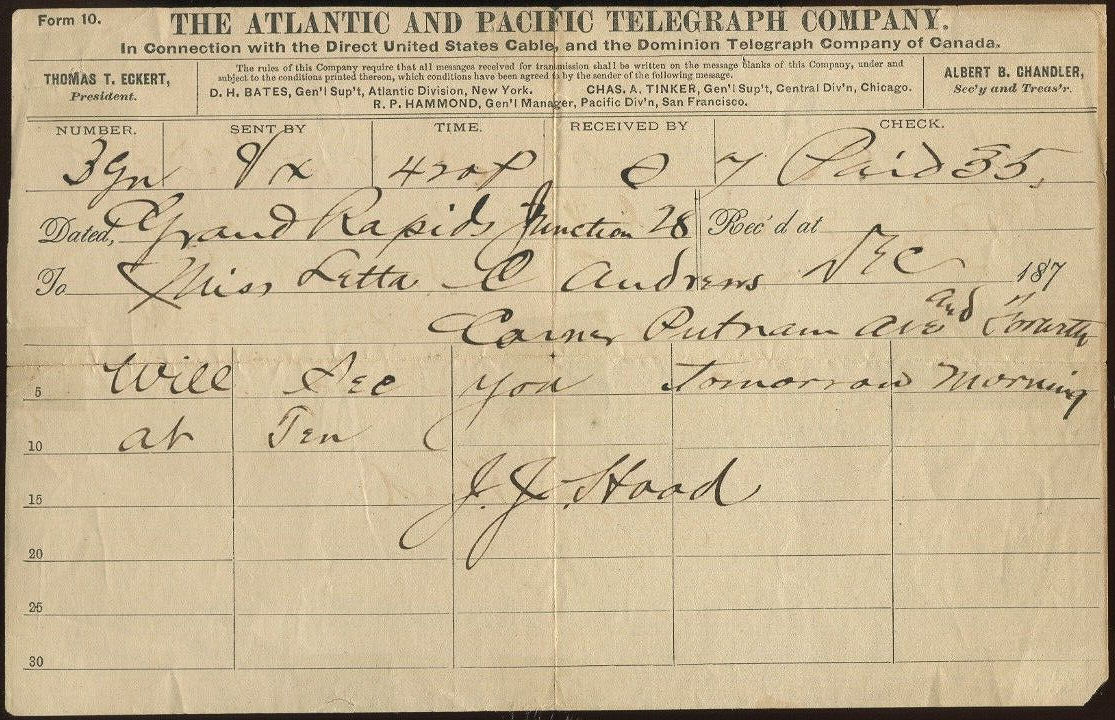 Form 10.
THE ATLANTIC AND PACIFIC TELEGRAPH COMPANY.
In Connection with the Direct United States Cable, and the Dominion Telegraph Company of Canada.
THOMAS T. ECKERT,
President.
The rules of this Company require that all messages received for transmission shall be written on the message blanks of this Company, under and
subject to the conditions printed thereon, which conditions have been agreed to by the sender of the following message.
D. H. BATES, Gen'l Sup't, Atlantic Division, New York. CHAS. A. TINKER, Gen'l Sup't, Central Div'n, Chicago.
R. P. HAMMOND, Gen'l Manager, Pacific Div'n, San Francisco.
ALBERT B. CHANDLER,
Sec'y and Treas'r.
NUMBER. SENT BY TIME. RECEIVED BY CHECK.
420P 7 Paid 35
Dated, Grand Rapids Junction 28 Rec'd at
To Miss Letta C Andrews Dec 187
Corner Putnam Ave and Fourth
5 Will See you tomorrow morning
10 at Ten
15 J. J. Hood
20
25
30